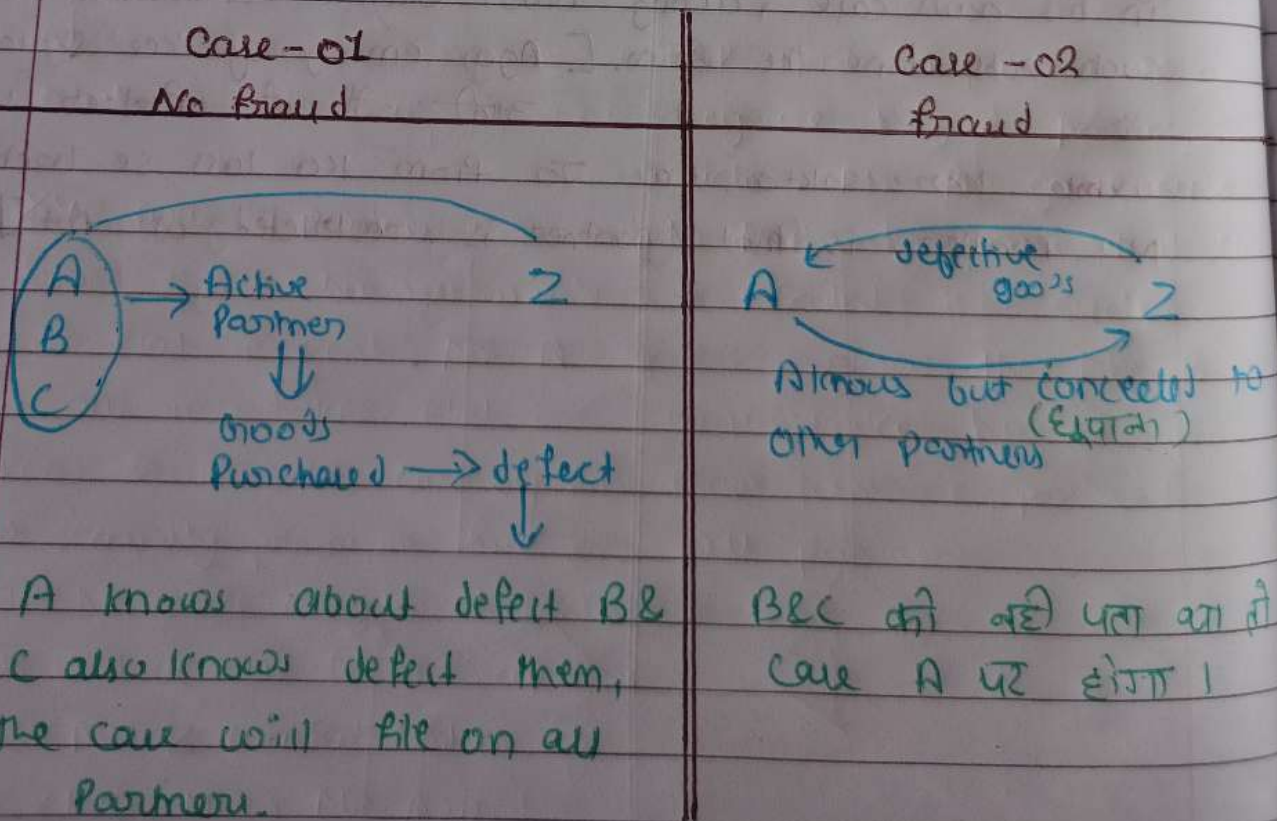 Case - 01
No fraud
A
B
C
Active
Partner
Goods
Purchased → defect
Z
A knows about defect B &
C also knows defect then,
The case will file on all
Partners.
Case - 02
fraud
A
defective
goods
Z
A knows but concealed to
(छुपाना)
other partners
B&C को नही पता था तो
Case A पर होगा ।